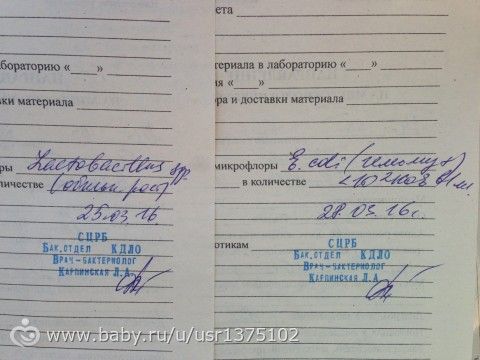 абораторию «____»
вки материала
ры Lactobacillus spp.
личестве (обильн рост)
25.03.16
СЦРБ
БАК.ОТДЕЛ КДЛО
ВРАЧ-БАКТЕРИОЛОГ
КАРПИНСКАЯ Л.А.
ета
териала в лабораторию «____»
ия «____»
ора и доставки материала
микрофлоры E. coli (гемолиз+)
в количестве <10²КОЕ/мл.
28.03.16г.
отикам
СЦРБ
БАК.ОТДЕЛ КДЛО
ВРАЧ-БАКТЕРИОЛОГ
КАРПИНСКАЯ Л.А.
www.baby.ru/u/usr1375102